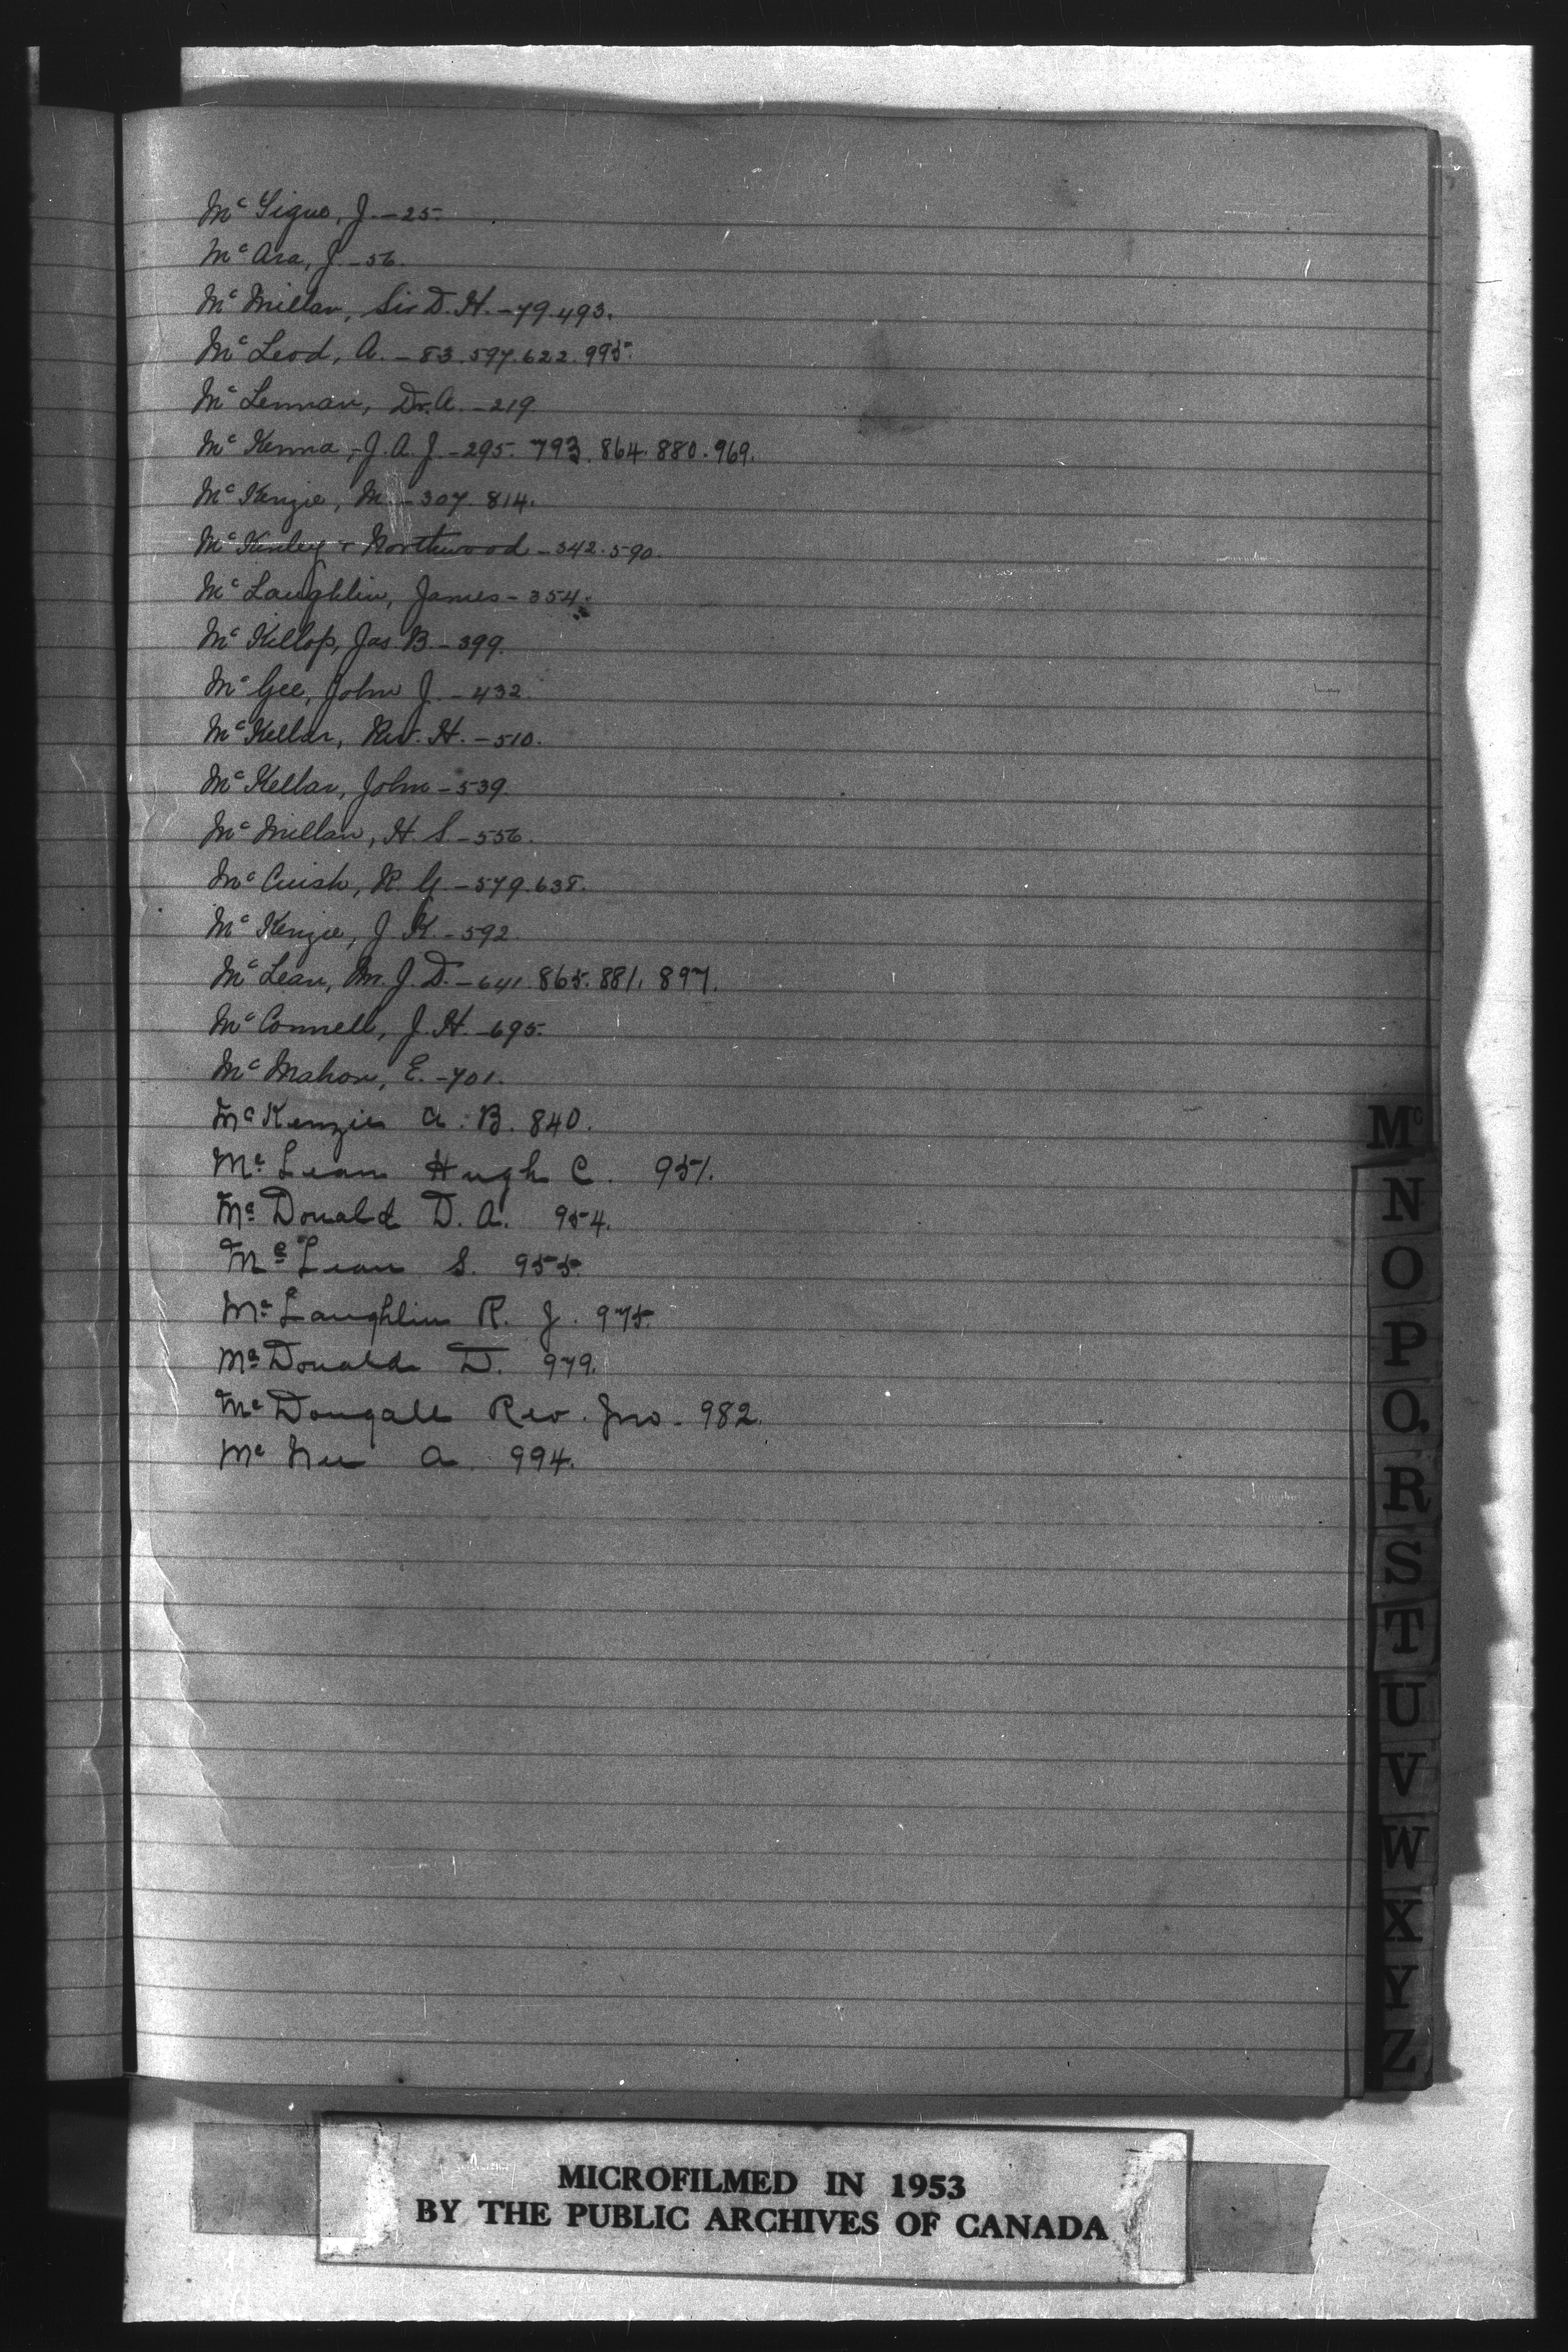 Mc Ara, J. - 56.
Mc Millan, Sir D. H. - 79. 493.
Mc Leod, A. - 83. 597. 622. 995.
Mc Lennan, Dr. A. - 219.
Mc Kenna, - J. A. J. - 295. 793. 864. 880. 969.
Mc Kenzie, M. - 307. 814.
Mc Kinley & Northwood - 342. 590.
Mc Laughlin, James - 354.
Mc Killop, Jas. B. - 399.
Mc Gee, John J. - 432.
Mc Kellar, Rev. H. - 510.
Mc Kellar, John - 539.
Mc Millan, H. S. - 556.
Mc Cuish, R. G. - 579. 638.
Mc Kenzie, J. K. - 592.
Mc Lean, Mr. J. D. - 641. 865. 881. 897.
Mc Connell, J. H. - 695.
Mc Mahon, E. - 701.
Mc Kenzie A. B. 840.
Mc Lean Hugh C. 951.
Mc Donald D. A. 954.
Mc Lean S. 955.
Mc Laughlin R. J. 975.
Mc Donald D. 979.
Mc Dougall Rev. Jno. 982.
Mc Nee A. 994.
Mc
N
O
P
Q
R
S
T
U
V
W
X
Y
Z
MICROFILMED IN 1953
BY THE PUBLIC ARCHIVES OF CANADA